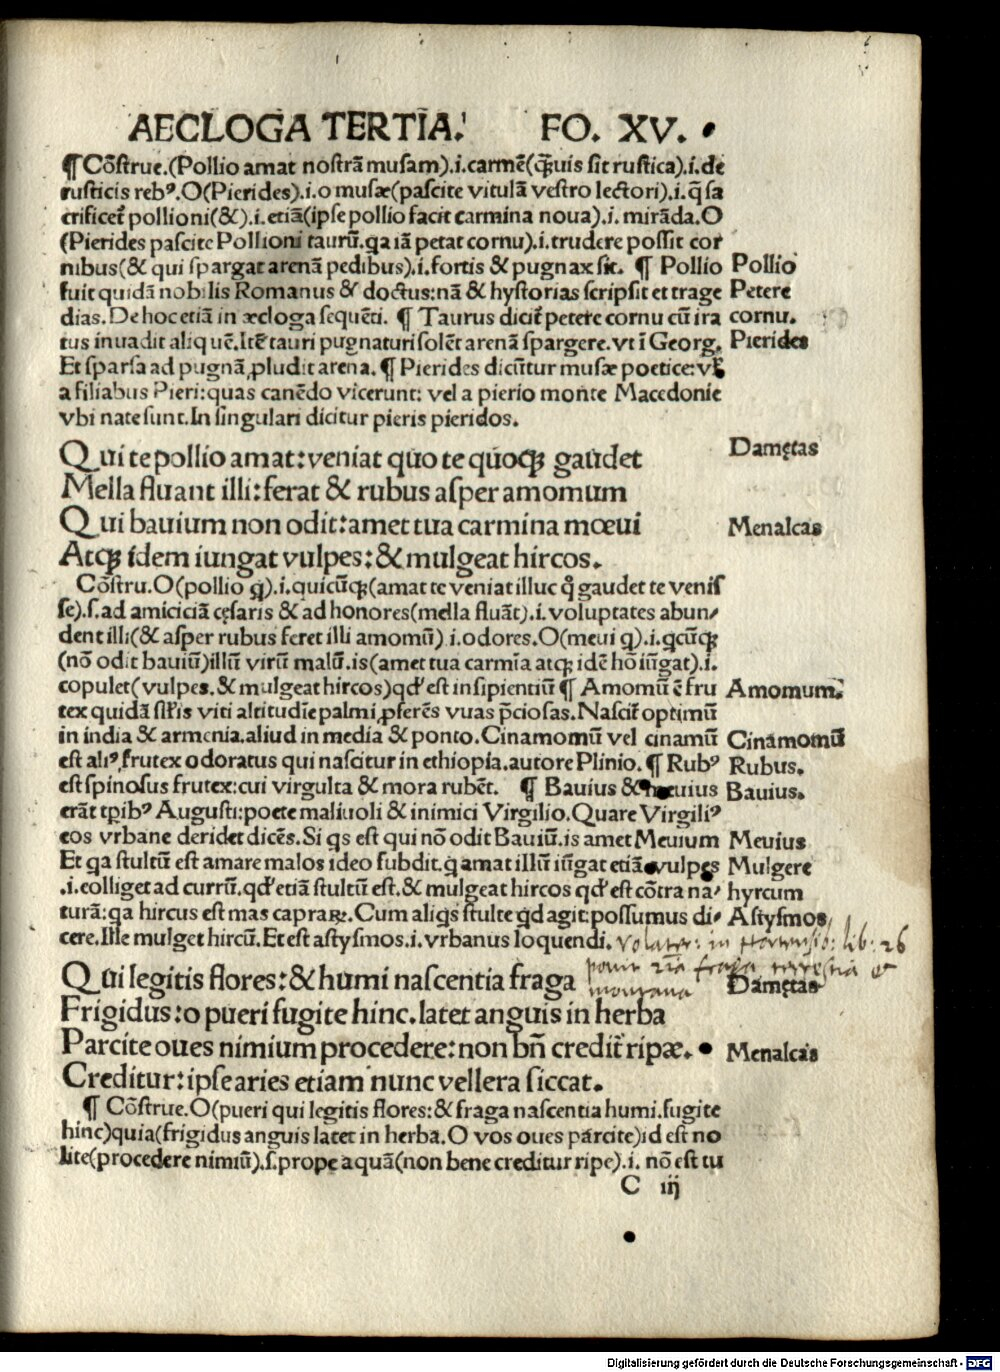 AECLOGA TERTIA. FO. XV.
¶ Cõstrue.(Pollio amat nostrã musam).i.carmẽ(q̃uis sit rustica).i.de
rusticis rebꝰ.O(Pierides).i.o musæ(pascite vitulã vestro lectori).i.q̃ sa
crificet̃ pollioni(&).i.etiã(ipse pollio facit carmina noua).i.mirãda.O
(Pierides pascite Pollioni taurũ.qa iã petat cornu).i.trudere possit cor
nibus(& qui spargat arenã pedibus).i.fortis & pugnax sit. ¶ Pollio Pollio
fuit quidã nobilis Romanus & doctus:nã & hystorias scripsit et trage Petere
dias.De hoc etiã in æcloga sequẽti. ¶ Taurus dicit̃ petere cornu cũ ira cornu.
tus inuadit aliquẽ.Itẽ tauri pugnaturi solẽt arenã spargere.vt ĩ Georg. Pierides
Et sparsa ad pugnã ꝓludit arena.¶ Pierides dicũtur musæ poetice:vł
a filiabus Pieri:quas canẽdo vicerunt: vel a pierio monte Macedonie
vbi nate sunt.In singulari dicitur pieris pieridos.
Qui te pollio amat:veniat quo te quoqꝫ gaudet Damętas
Mella fluant illi:ferat & rubus asper amomum
Qui bauium non odit:amet tua carmina mœui Menalcas
Atqꝫ idem iungat vulpes:& mulgeat hircos.
Cõstru.O(pollio q̃).i.quicũqꝫ(amat te veniat illuc q̊ gaudet te venis
se).s.ad amiciciã cęsaris & ad honores(mella fluãt).i.voluptates abun/
dent illi(& asper rubus feret illi amomũ).i.odores.O(meui q̃).i.qcũqꝫ
(nõ odit bauiũ)illũ virũ malũ.is(amet tua carmĩa atqꝫ idẽ hõ iũgat).i.
copulet(vulpes.& mulgeat hircos)qď est insipientiũ ¶ Amomũ ẽ fru Amomum.
tex quidã sil̃is viti altitudĩe palmi ꝓferẽs vuas p̃ciosas.Nascit̃ optimũ
in india & armenia.aliud in media & ponto.Cinamomũ vel cinamũ Cinamomũ
est aliꝰ frutex odoratus qui nascitur in ethiopia.autore Plinio.¶ Rubꝰ Rubus.
est spinosus frutex:cui virgulta & mora rubẽt. ¶ Bauius & meuius Bauius.
erãt tp̃ibꝰ Augusti:poete maliuoli & inimici Virgilio.Quare Virgiliꝰ
eos vrbane deridet dicẽs.Si qs est qui nõ odit Bauiũ.is amet Meuium Meuius
Et qa stultũ est amare malos ideo subdit.q̃ amat illũ iũgat etiã vulpes Mulgere
.i.colliget ad currũ.qď etiã stultũ est.& mulgeat hircos qď est cõtra na/ hyrcum
turã:qa hircus est mas capraꝝ.Cum aliqs stulte qd agit:possumus di/ Astysmos
cere.Ille mulget hircũ.Et est astysmos.i.vrbanus loquendi. Volater: in Hortensib: lib: 26
ponit fraga terrestia &
montana
Qui legitis flores:& humi nascentia fraga Damętas
Frigidus:o pueri fugite hinc.latet anguis in herba
Parcite oues nimium procedere:non bñ credit̃ ripæ. Menalcas
Creditur:ipse aries etiam nunc vellera siccat.
¶ Cõstrue.O(pueri qui legitis flores:& fraga nascentia humi.fugite
hinc)quia(frigidus anguis latet in herba.O vos oues parcite)id est no
lite(procedere nimiũ).s.prope aquã(non bene creditur ripe).i. nõ est tu
C iij
Digitalisierung gefördert durch die Deutsche Forschungsgemeinschaft - DFG